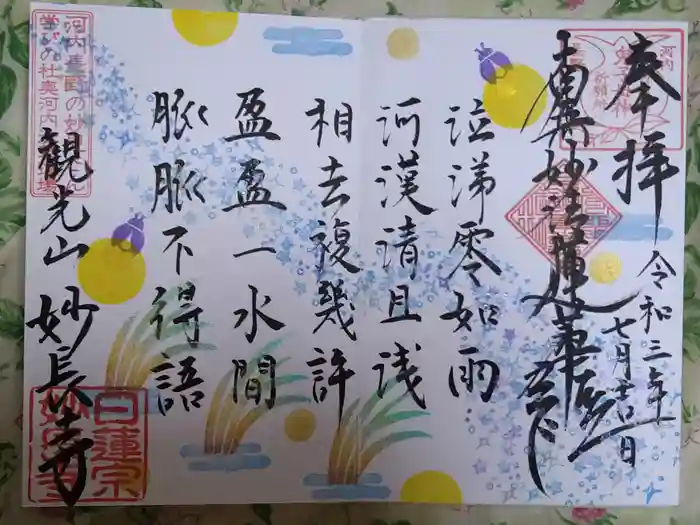 奉拝
令和三年
七月吉日
南無妙法蓮華経
泣涕零如雨
河漢清且浅
相去複幾許
盈盈一水間
脈脈不得語
観光山 妙長寺
日蓮宗
妙長寺
河内長野の妙
学びの社奥河内
河内
祈願所